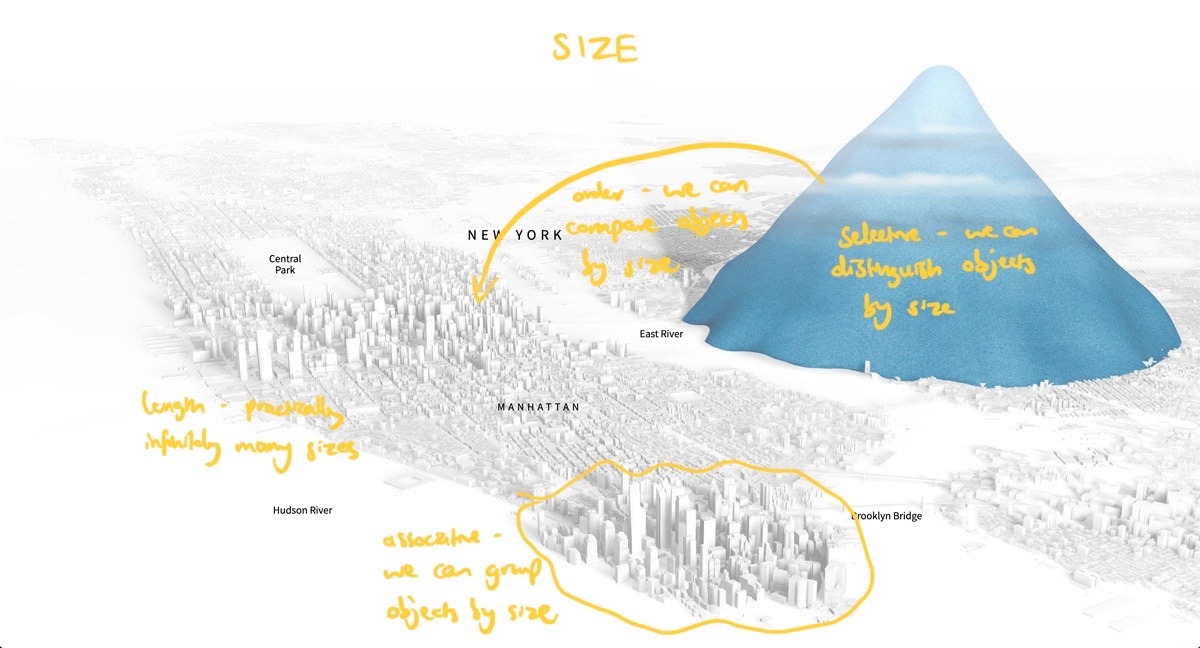 SIZE
order - we can
compare objects
by size
NEW YORK
Selective - we can
distinguish objects
by size
Central
Park
East River
length - practically
infinitely many sizes
MANHATTAN
Hudson River
Brooklyn Bridge
associative -
we can group
objects by size